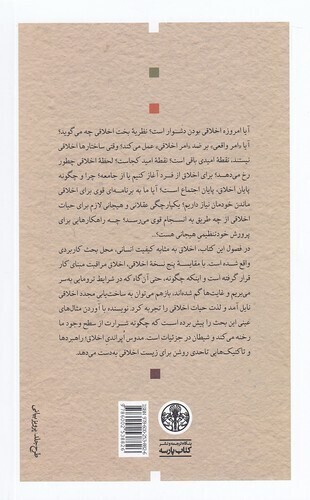 آیا امروزه اخلاقی بودن دشوار است؟ نظریهٔ بخت اخلاقی چه می‌گوید؟
آیا «امر واقعی» بر ضد «امر اخلاقی» عمل می‌کند؟ وقتی ساختارها اخلاقی
نیستند، نقطهٔ امیدی باقی است؟ نقطهٔ امید کجاست؟ لحظهٔ اخلاقی چطور
رخ می‌دهد؟ برای اخلاق از فرد آغاز کنیم یا از جامعه؟ چرا و چگونه
پایان اخلاق، پایان اجتماع است؟ آیا ما به برنامه‌ای قوی برای اخلاقی
ماندن خودمان نیاز داریم؟ یکپارچگی عقلانی و هیجانی لازم برای حیات
اخلاقی از چه طریق به انسجام قوی می‌رسد؟ چه راهکارهایی برای
پرورش خودتنظیمی هیجانی هست؟...
در فصول این کتاب، اخلاق به مثابه کیفیت انسانی، محل بحث کاربردی
واقع شده است. با مقایسهٔ پنج نسخهٔ اخلاقی، اخلاق مراقبت مبنای کار
قرار گرفته است و اینکه چگونه، حتی آن‌گاه که در شرایط ترومایی به‌سر
می‌بریم و غایت‌ها گم شده‌اند، باز هم می‌توان به ساخت‌یابی مجدد اخلاقی
نایل آمد و لذت حیات اخلاقی را تجربه کرد. نویسنده با آوردن مثال‌های
عینی این بحث را پیش برده است که چگونه شرارت از سطح وجود ما
رخنه می‌کند و شیطان در جزئیات است. مدوس اپراندی اخلاق؛ راهبردها و
تاکتیک‌هایی تاحدی روشن برای زیست اخلاقی به‌دست می‌دهد
بنگاه ترجمه و نشر
کتاب پارسه
طرح جلد: پرویز بیانی